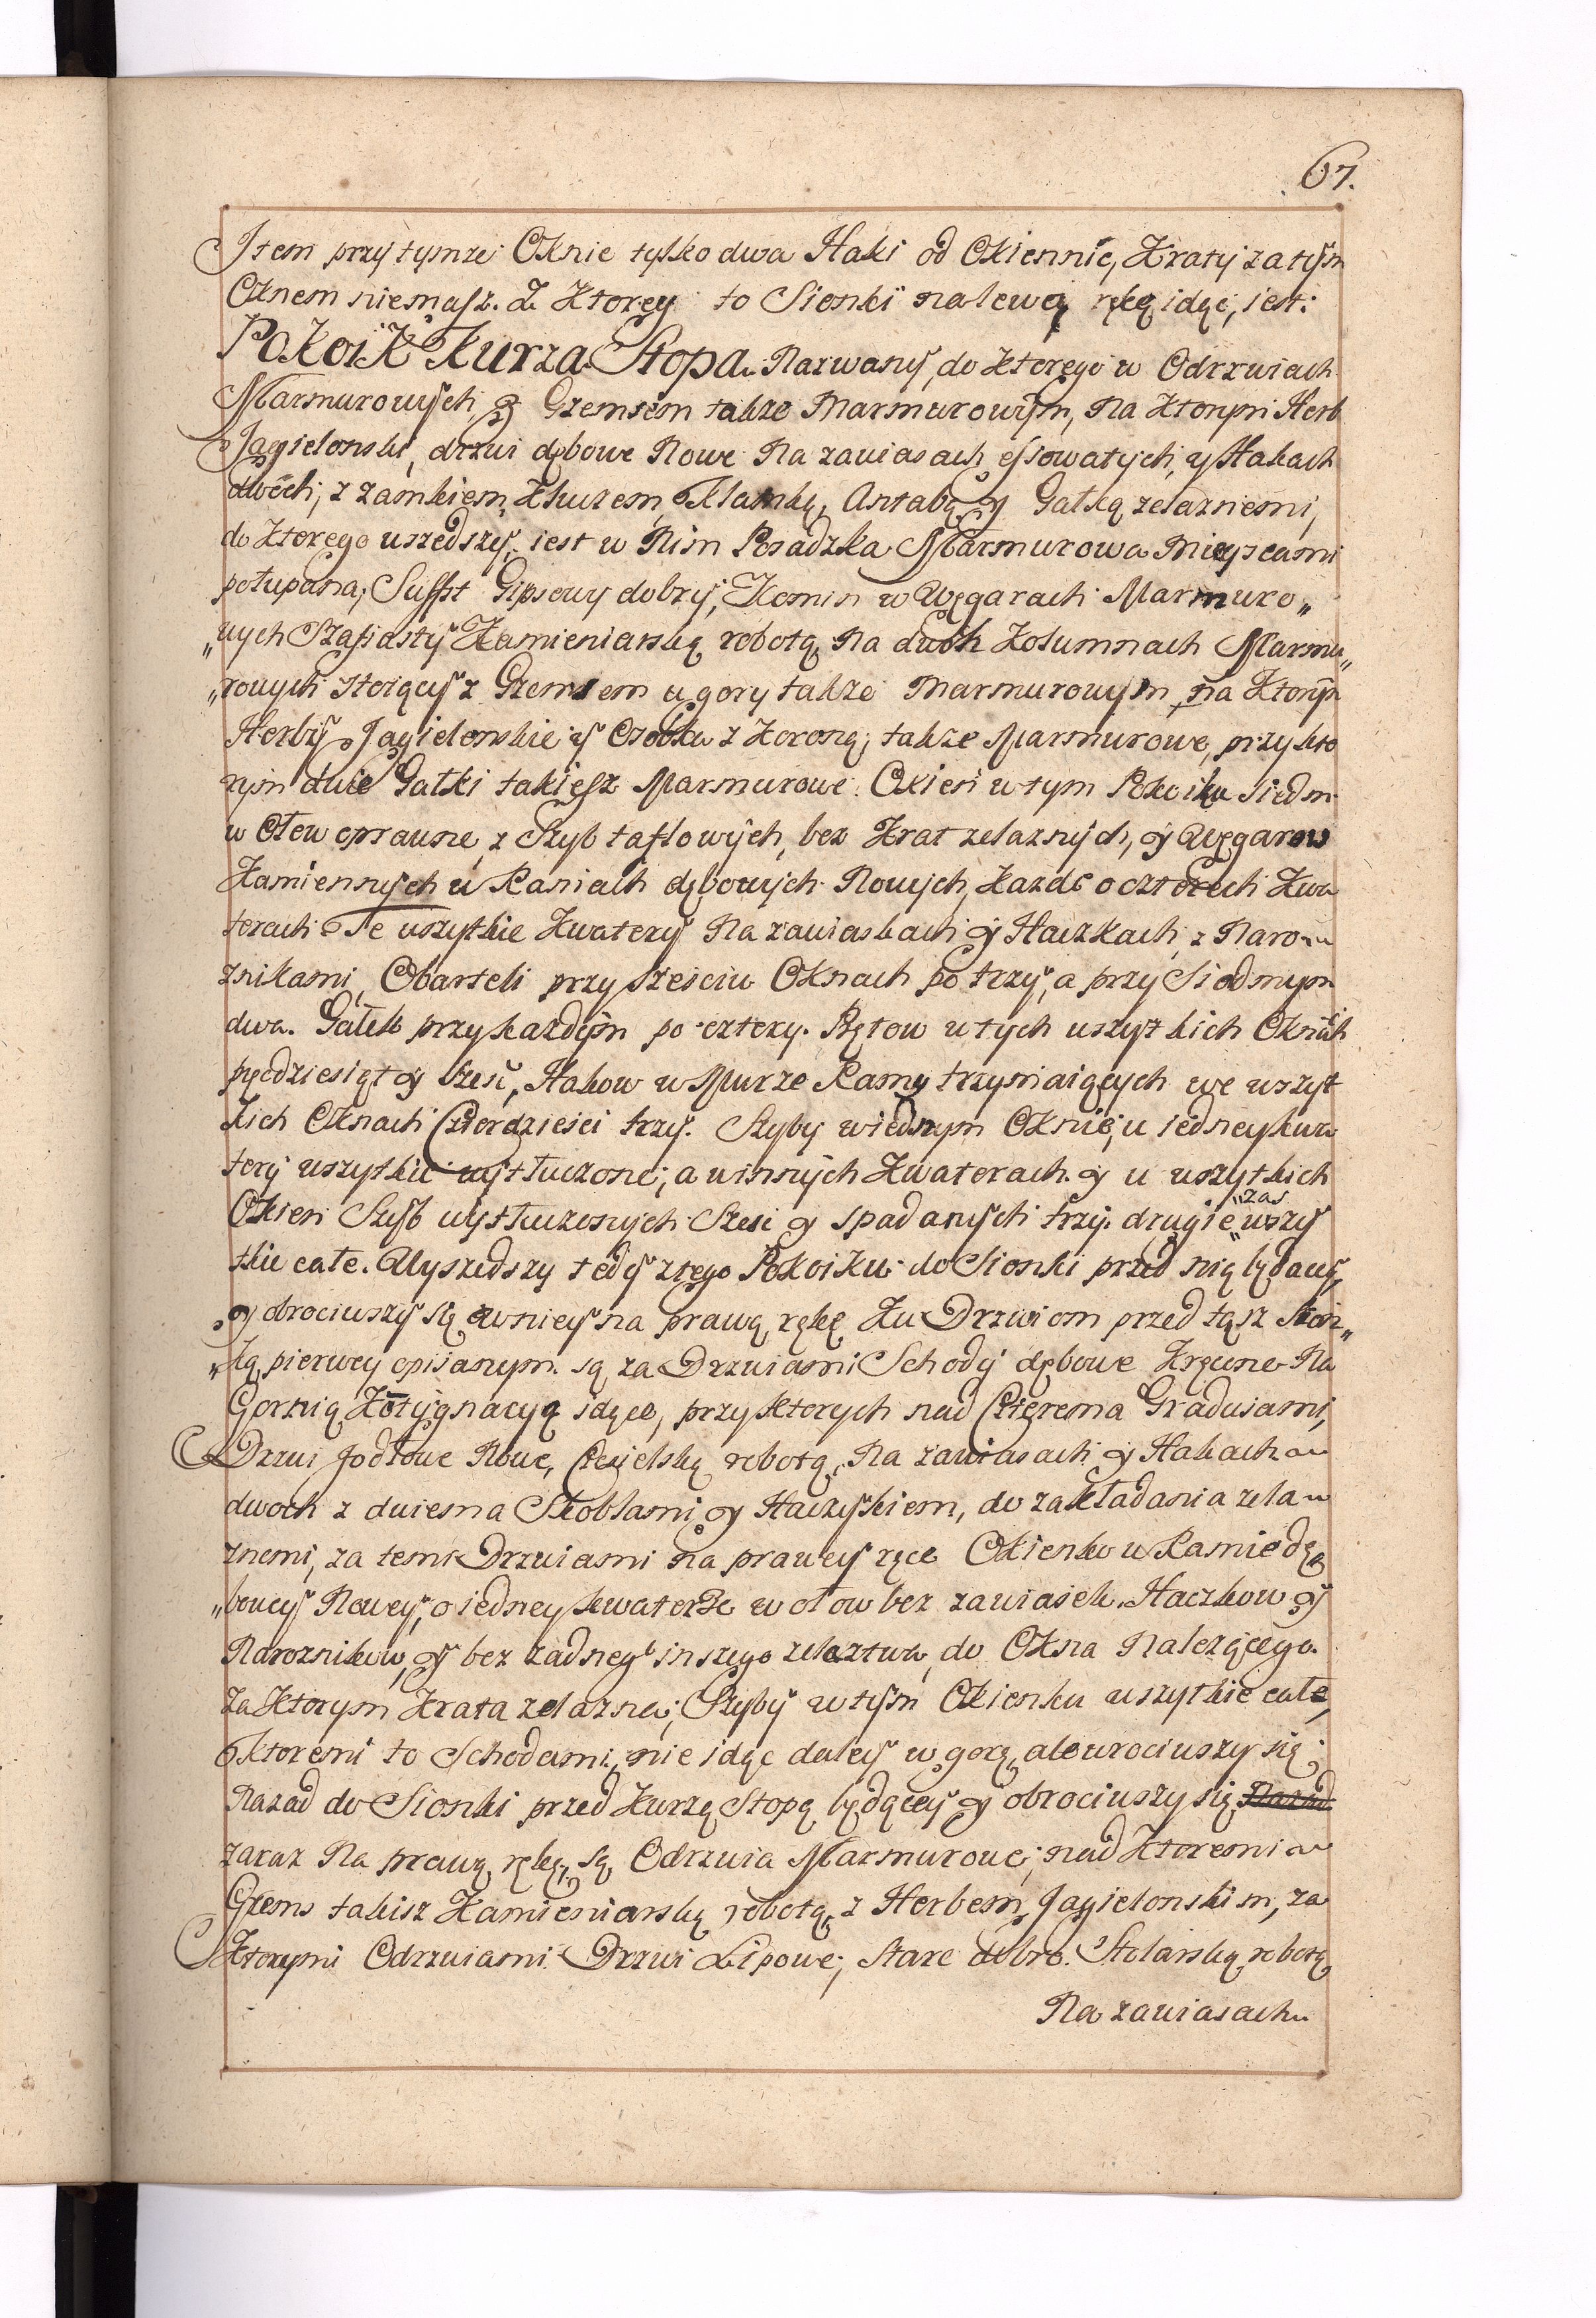 67.
Item przy tymze Oknie tylko dwa Haki od Okiennic, Kraty za tym
Oknem niemasz. Z Ktorey to Sionki na lewą rękę idąc, iest:
Pokoik Kurza Stopa Nazwany, do Ktorego w Odrzwiach
Marmurowych, z Gzemsem także Marmurowym, Na Ktorym Herb
Jagielonski, drzwi dębowe Nowe Na zawiasach essowatych, y Hakach
dwóch, z zamkiem, Kluczem, Klamką, Antabą, y Gałką zelaznemi,
do Ktorego wszedszy, iest w Nim Posadzka Marmurowa Mieyscami
połupana, Suffit Gipsowy dobry, Komin w Węgarach Marmuro„
„wych Szafiasty Kamieniarską robotą, Na dwoch Kolumnach Marmu„
„rowych stoiący z Gzemsem u gory także Marmurowym, na Ktorym
Herby Jagielonskie y Osobka z Koroną, także Marmurowe, przy kto
rym dwie Gałki takiesz Marmurowe. Okien w tym Pokoiku siedm
w Ołow oprawne, z Szyb taflowych, bez Krat zelaznych, y Węgarow
Kamiennych w Ramach dębowych Nowych, Kazde o czterech Kwa
terach Te wszytkie Kwatery Na zawiaskach y Haczkach, z Naro„
znikami, Obarteli przy sześciu Oknach po trzy, a przy Siodmym
dwa. Gałek przy kazdym po cztery. Prętow w tych wszytkich Oknach
pęcdziesiąt y Sześć, Hakow w Murze Ramy trzymaiących we wszyt
kich Oknach Czterdzieści trzy. Szyby w iednym Oknie, u iedney kwa
tery wszytkie wytłuczone, a w innych Kwaterach y u wszytkich
Okien Szyb wytłuczonych Sześć y spadanych trzy. drugie „zas wszy
tkie całe. Wyszedszy tedy z tego Pokoiku do Sionki przed nią będący,
y obrociwszy się w niey na prawą rękę Ku Drzwiom przed tąsz Sion„
„ką, pierwey opisanym. są za Drzwiami Schody dębowe Kręcone Na
Gornią Kątygnacyą idące, przy Ktorych nad Czterema Gradusami,
Drzwi Jodłowe Nowe, Ciesielską robotą, Na zawiasach y Hakach
dwoch z dwiema Skoblami y Haczykiem, do zakładania zela„
znemi, za temi Drzwiami na prawey ręce Okienko w Ramie dę„
„bowey Nowey, o iedney kwaterze w ołow bez zawiasek, Haczkow y
Naroznikow, y bez zadnego inszego zelaztwa, do Okna Nalezącego.
za Ktorym Krata zelazna, Szyby w tym Okienku wszytkie całe,
Ktoremi to Schodami, nie idąc daley w gorę, ale wrociwszy się
Nazad do Sionki przed Kurzą Stopą będącey y obrociwszy się Nazad
zaraz Na prawą rękę, są Odrzwia Marmurowe, nad Ktoremi
Gzems takisz Kamieniarską robotą, z Herbem Jagielonskim, za
Ktorymi Odrzwiami Drzwi Lipowe, Stare dobre. Stolarską robotą
Na zawiasach